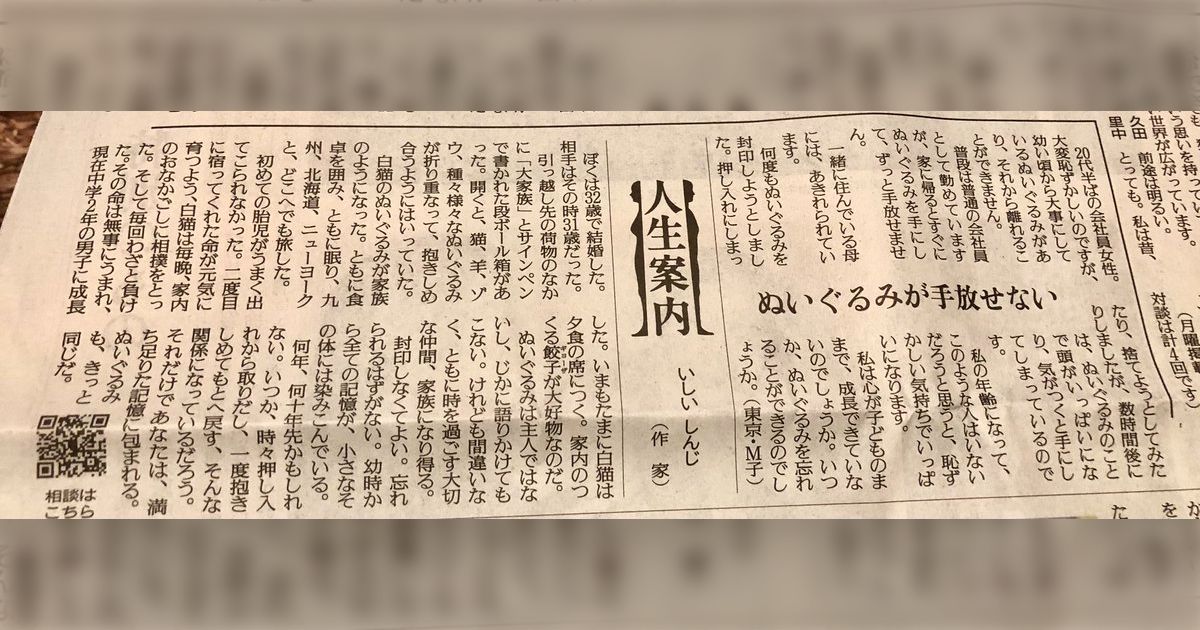 人生案内
ぬいぐるみが手放せない
20代半ばの会社員女性。
大変恥ずかしいのですが、
幼い頃から大事にして
いるぬいぐるみがあ
り、それから離れるこ
とができません。
普段は普通の会社員
として勤めています
が、家に帰るとすぐに
ぬいぐるみを手にし
て、ずっと手放せませ
ん。
一緒に住んでいる母
には、あきれられてい
ます。
何度もぬいぐるみを
封印しようとしまし
た。押し入れにしまっ
たり、捨てようとしてみた
りしましたが、数時間後に
は、ぬいぐるみのこと
で頭がいっぱいにな
り、気がつくと手にし
てしまっているので
す。
私の年齢になって、
このような人はいない
だろうと思うと、恥ず
かしい気持ちでいっぱ
いになります。
私は心が子どものま
まで、成長できていな
いのでしょうか。いつ
か、ぬいぐるみを忘れ
ることができるのでし
ょうか。（東京・M子）
いしい しんじ
（作 家）
ぼくは32歳で結婚した。
相手はその時31歳だった。
引っ越し先の荷物のなか
に「大家族」とサインペン
で書かれた段ボール箱があ
った。開くと、猫、羊、ゾ
ウ、種々様々なぬいぐるみ
が折り重なって、抱きしめ
合うようにはいっていた。
白猫のぬいぐるみが家族
のようになった。ともに食
卓を囲み、ともに眠り、九
州、北海道、ニューヨーク
と、どこへでも旅した。
初めての胎児がうまく出
てこられなかった。二度目
に宿ってくれた命が元気に
育つよう、白猫は毎晩、家内
のおなかごしに相撲をとっ
た。そして毎回わざと負け
た。その命は無事にうまれ、
現在中学2年の男子に成長
した。いまもたまに白猫は
夕食の席につく。家内のつ
くる餃子が大好物なのだ。
ぬいぐるみは主人ではな
いし、じかに語りかけても
こない。けれども間違いな
く、ともに時を過ごす大切
な仲間、家族になり得る。
封印しなくてよい。忘れ
られるはずがない。幼時か
ら全ての記憶が、小さなそ
の体には染みこんでいる。
何年、何十年先かもしれ
ない。いつか、時々押し入
れから取りだし、一度抱き
しめてもとへ戻す、そんな
関係になっているだろう。
それだけであなたは、満
ち足りた記憶に包まれる。
ぬいぐるみ
も、きっと
同じだ。
相談は
こちら
う思いを持ってい
世界が広がっています。
久田 前途は明るい。
里中 とっても。私は昔、
（月曜掲載
対談は計4回です）